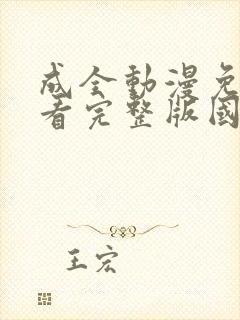 成全動漫免
看完整版國
王宏